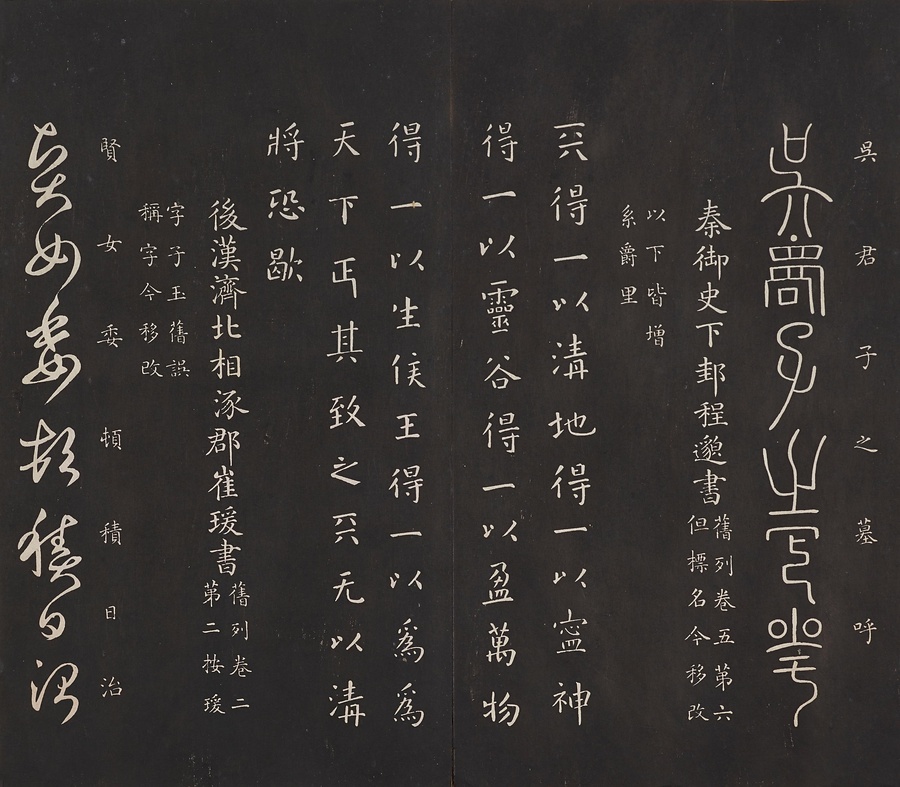 吳君子之墓呼
吳君子之墓呼
秦御史下邽程邈書
舊列卷五第六
但標名今移改
以下皆增
系爵里
天得一以清地得一以寧神
得一以靈谷得一以盈萬物
得一以生侯王得一以為為
天下正其致之天无以清
將恐歇
後漢濟北相涿郡崔瑗書
舊列卷二
第二按瑗
字子玉舊誤
稱字今移改
賢女委頓積日治
賢女委頓積日治